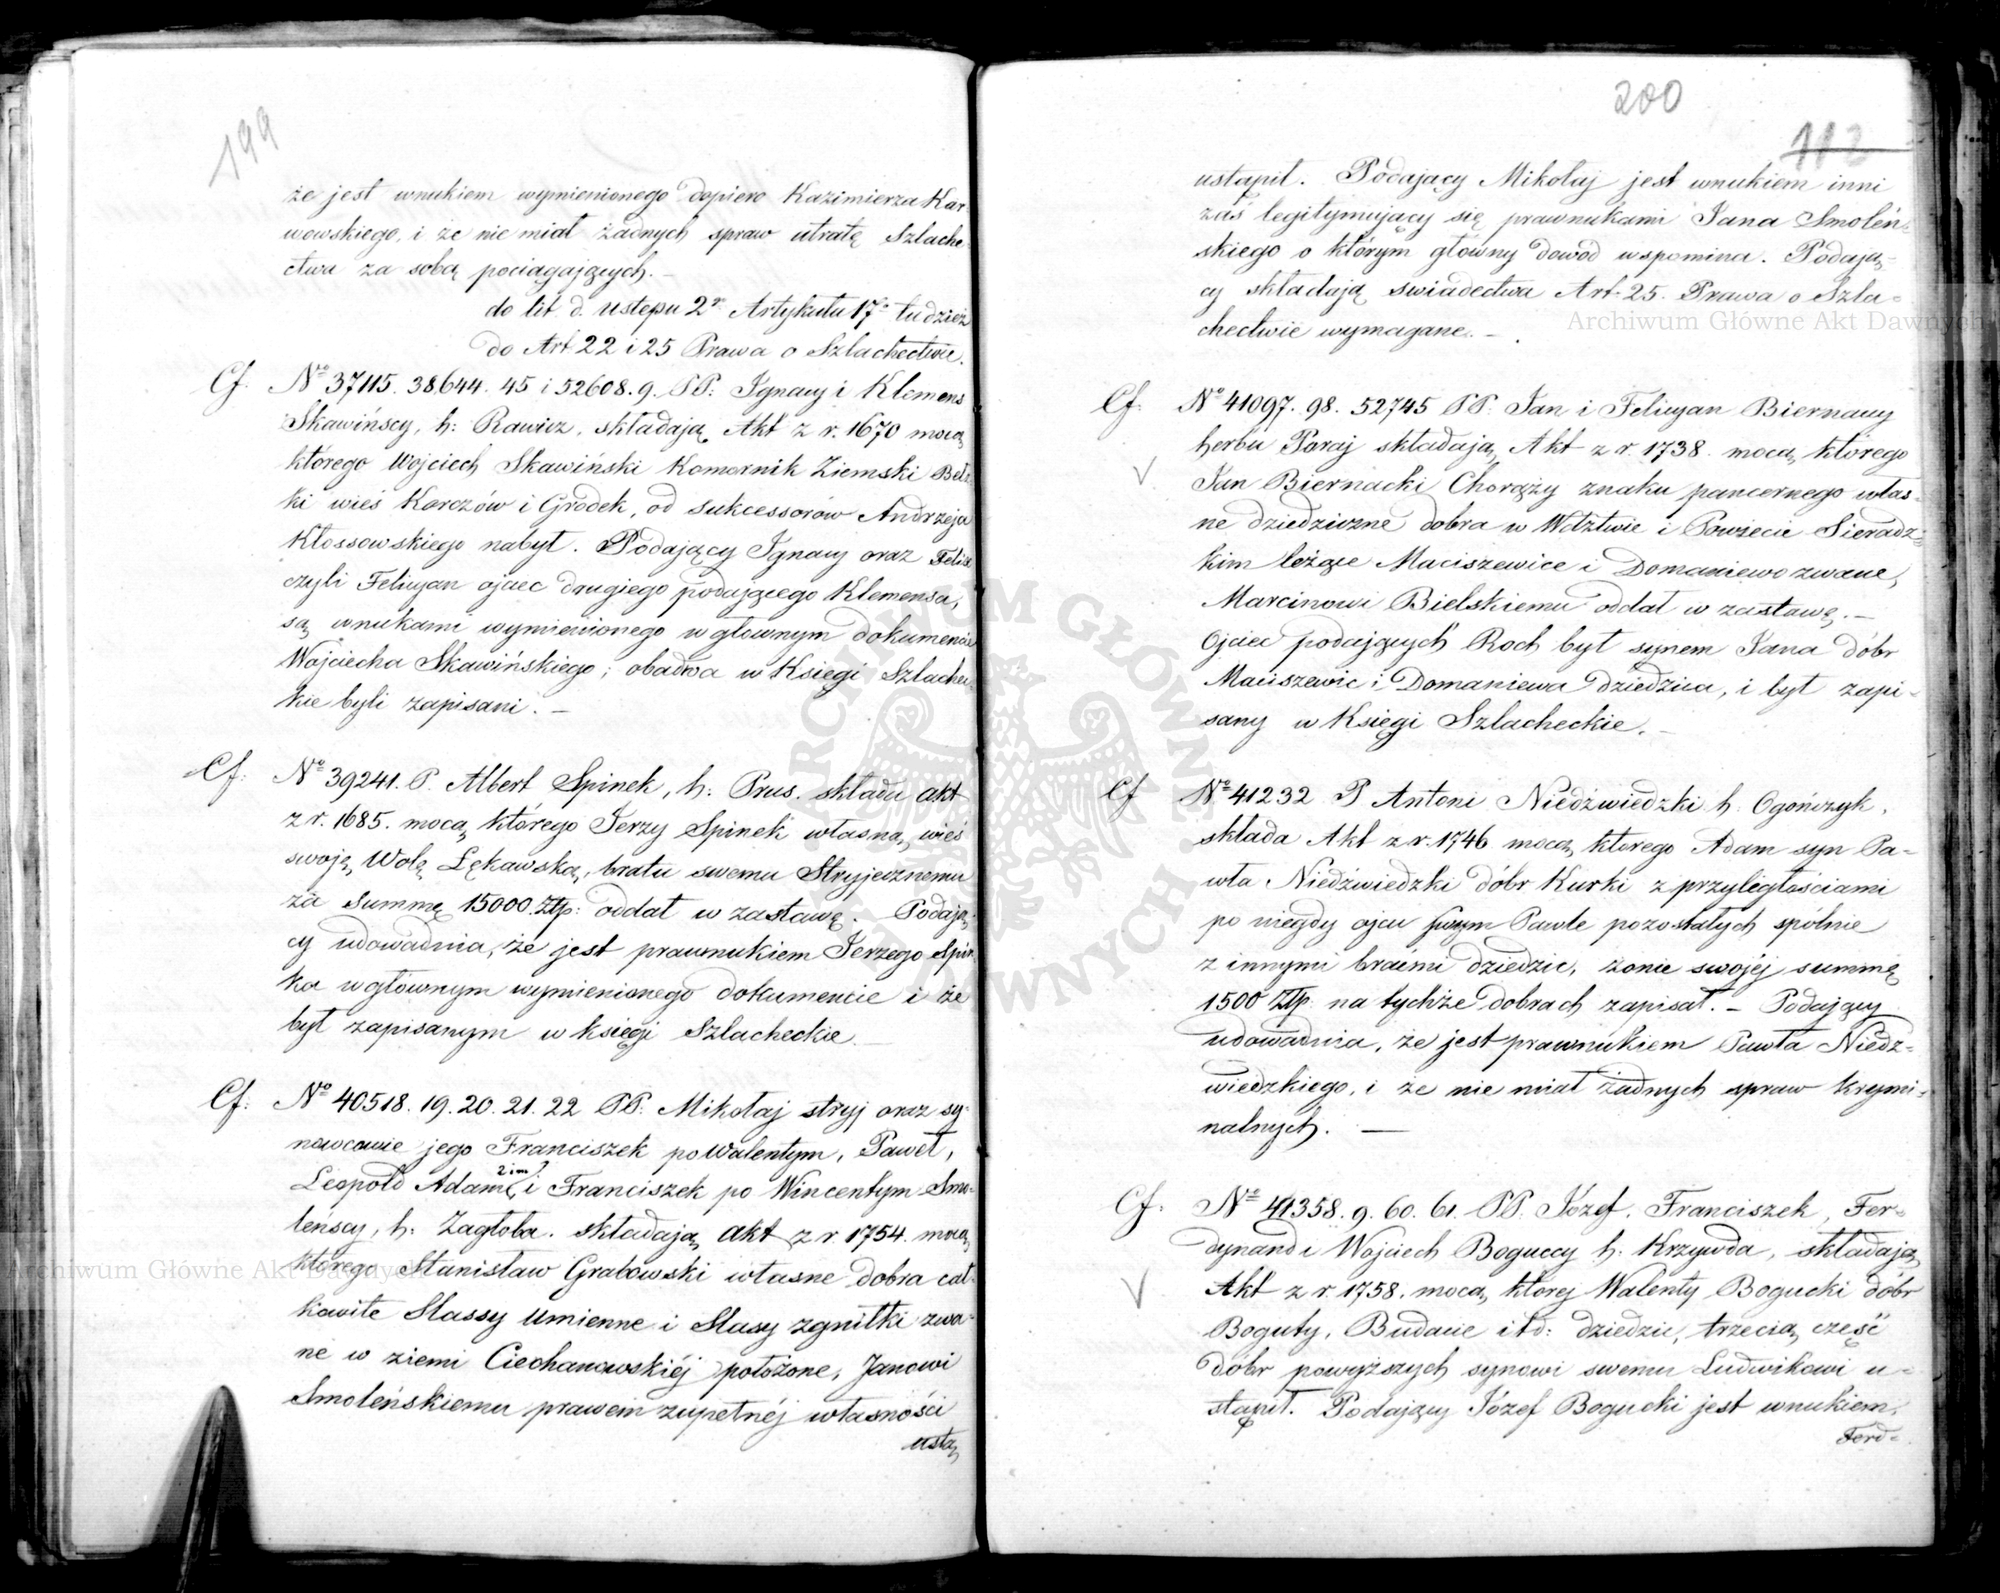 199
że jest wnukiem wymienionego dopiero Kazimierza Kar-
wowskiego, i że nie miał żadnych spraw utratę Szlache-
ctwa za sobą pociągających. —
do lit d. ustępu 2º Artykułu 17º tudzież
do Art 22 i 25 Prawa o Szlachectwie.
Cf. Nº 37115. 38644. 45 i 52608. 9. PP: Ignacy i Klemens
Skawińscy, h: Rawicz, składają Akt z r. 1670 mocą
którego Wojciech Skawiński Komornik Ziemski Bełz-
ki wieś Karczów i Gródek, od sukcessorów Andrzeja
Kłossowskiego nabył. Podający Ignacy oraz Felix
czyli Felicyan ojciec drugiego podającego Klemensa,
są wnukami wymienionego w głównym dokumencie
Wojciecha Skawińskiego; obadwa w Księgi Szlachec-
kie byli zapisani. —
Cf. Nº 39241. P. Albert Spinek, h: Prus. składa akt
z r. 1685. mocą którego Jerzy Spinek własną wieś
swoję Wolę Łękawską, bratu swemu Stryjecznemu
za Summę 15000. Złp: oddał w zastawę. Podają-
cy udowadnia, że jest prawnukiem Jerzego Spin-
ka w głównym wymienionego dokumencie i że
był zapisanym w księgi Szlacheckie. —
Cf: Nº 40518. 19. 20. 21. 22 PP: Mikołaj stryj oraz sy-
nowcowie jego Franciszek po Walentym, Paweł,
2 im?
Leopold Adam i Franciszek po Wincentym Smo-
leńscy, h: Zagłoba. składają akt z r. 1754. mocą
którego Stanisław Grabowski własne dobra cał-
kowite Slassy Umienne i Slasy zgniłki zwa-
ne w ziemi Ciechanowskiéj położone, Janowi
Smoleńskiemu prawem zupełnéj własności
ustą
200
113
ustąpił. Podający Mikołaj jest wnukiem inni
zaś legitymujący się prawnukami Jana Smoleń-
skiego o którym główny dowód wspomina. Podają-
cy składają świadectwa Art. 25. Prawa o Szla-
chectwie wymagane. —
Cf. Nº 41097. 98. 52745 PP: Jan i Felicyan Biernaccy
herbu Poraj składają Akt z r. 1738. mocą którego
Jan Biernacki Chorąży znaku pancernego włas-
ne dziedziczne dobra w Wdztwie i Powiecie Sieradz-
kim leżące Maciszewice i Domaniewo zwane,
Marcinowi Bielskiemu oddał w zastawę. —
Ojciec podających Roch był synem Jana dóbr
Maciszewic i Domaniewa dziedzica, i był zapi-
sany w Księgi Szlacheckie. —
Cf Nº 41232 P Antoni Niedźwiedzki h. Ogończyk,
składa Akt z r. 1746 mocą którego Adam syn Pa-
wła Niedźwiedzki dóbr Kurki z przyległościami
po niegdy ojcu swym Pawle pozostałych spólnie
z innymi braćmi dziedzic, żonie swojéj summę
1500 Złp. na tychże dobrach zapisał. — Podający
udowadnia, że jest prawnukiem Pawła Niedź-
wiedzkiego, i że nie miał żadnych spraw krymi-
nalnych. —
Cf. Nº 41358. 9. 60. 61. PP. Józef, Franciszek, Fer-
dynand i Wojciech Boguccy h: Krzywda, składają
Akt z r. 1758. mocą któréj Walenty Bogucki dóbr
Boguty, Budacie itd: dziedzic, trzecią część
dóbr powyższych synowi swemu Ludwikowi u-
stąpił. Podający Józef Bogucki jest wnukiem,
Ferd-
Archiwum Główne Akt Dawnych
Archiwum Główne Akt Dawnych
ARCHIWUM GŁÓWNE AKT DAWNYCH